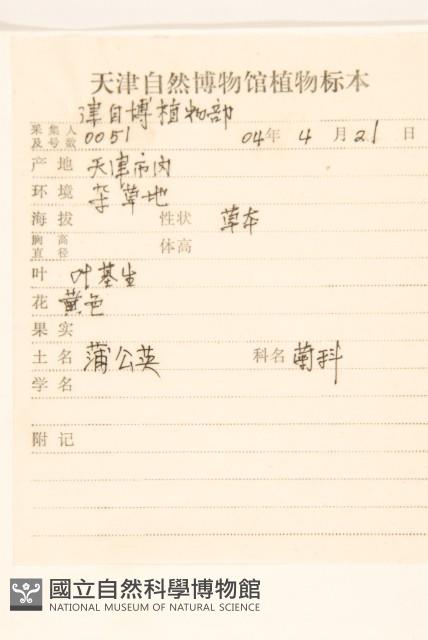 天津自然博物馆植物标本
津自博植物部
采集人及号数 0051 04年 4 月 21 日
产地 天津市内
环境 杂草地
海拔 性状 草本
胸高直径 体高
叶 叶基生
花 黄色
果实
土名 蒲公英 科名 菊科
学名
附记
國立自然科學博物館
NATIONAL MUSEUM OF NATURAL SCIENCE